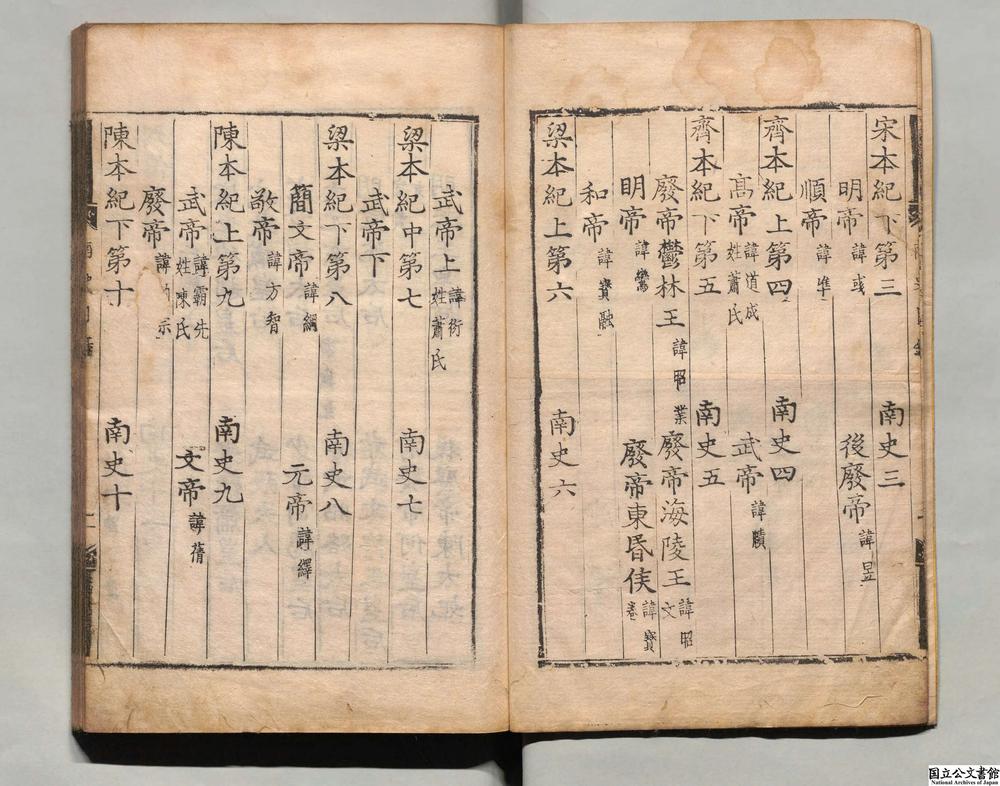 宋本紀下第三 南史三
明帝 諱彧 後廢帝 諱昱
順帝 諱準
齊本紀上第四 南史四
高帝 諱道成 姓蕭氏 武帝 諱賾
齊本紀下第五 南史五
廢帝鬱林王 諱昭業 廢帝海陵王 諱昭文
明帝 諱鸞 廢帝東昏侯 諱寶卷
和帝 諱寶融
梁本紀上第六 南史六
武帝上 諱衍 姓蕭氏
梁本紀中第七 南史七
武帝下
梁本紀下第八 南史八
簡文帝 諱綱 元帝 諱繹
敬帝 諱方智
陳本紀上第九 南史九
武帝 諱霸先 姓陳氏 文帝 諱蒨
廢帝 諱
陳本紀下第十 南史十
国立公文書館
National Archives of Japan